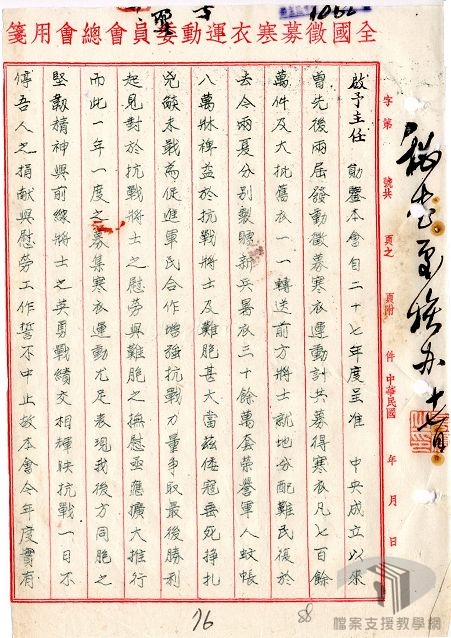 全國徵募寒衣運動委員會總會用箋
字第 號共 頁之 頁附 件 中華民國 年 月 日
啟予主任 勛鑒本會自二十七年度呈准 中央成立以來
曾先後兩屆發動徵募寒衣運動計共募得寒衣凡七百餘
萬件及大批舊衣一一轉送前方將士就地分配難民復於
去今兩夏分別製贈新兵暑衣三十餘萬套榮譽軍人蚊帳
八萬牀裨益於抗戰將士及難胞甚大當茲倭寇垂死掙扎
兇燄未戢為促進軍民合作增強抗戰力量爭取最後勝利
起見對於抗戰將士之慰勞與難胞之撫慰亟應擴大推行
而此一年一度之募集寒衣運動尤足表現我後方同胞之
堅韌精神與前線將士之英勇戰績交相輝映抗戰一日不
停吾人之捐献與慰勞工作誓不中止故本會今年度實有
76
88
檔案支援教學網